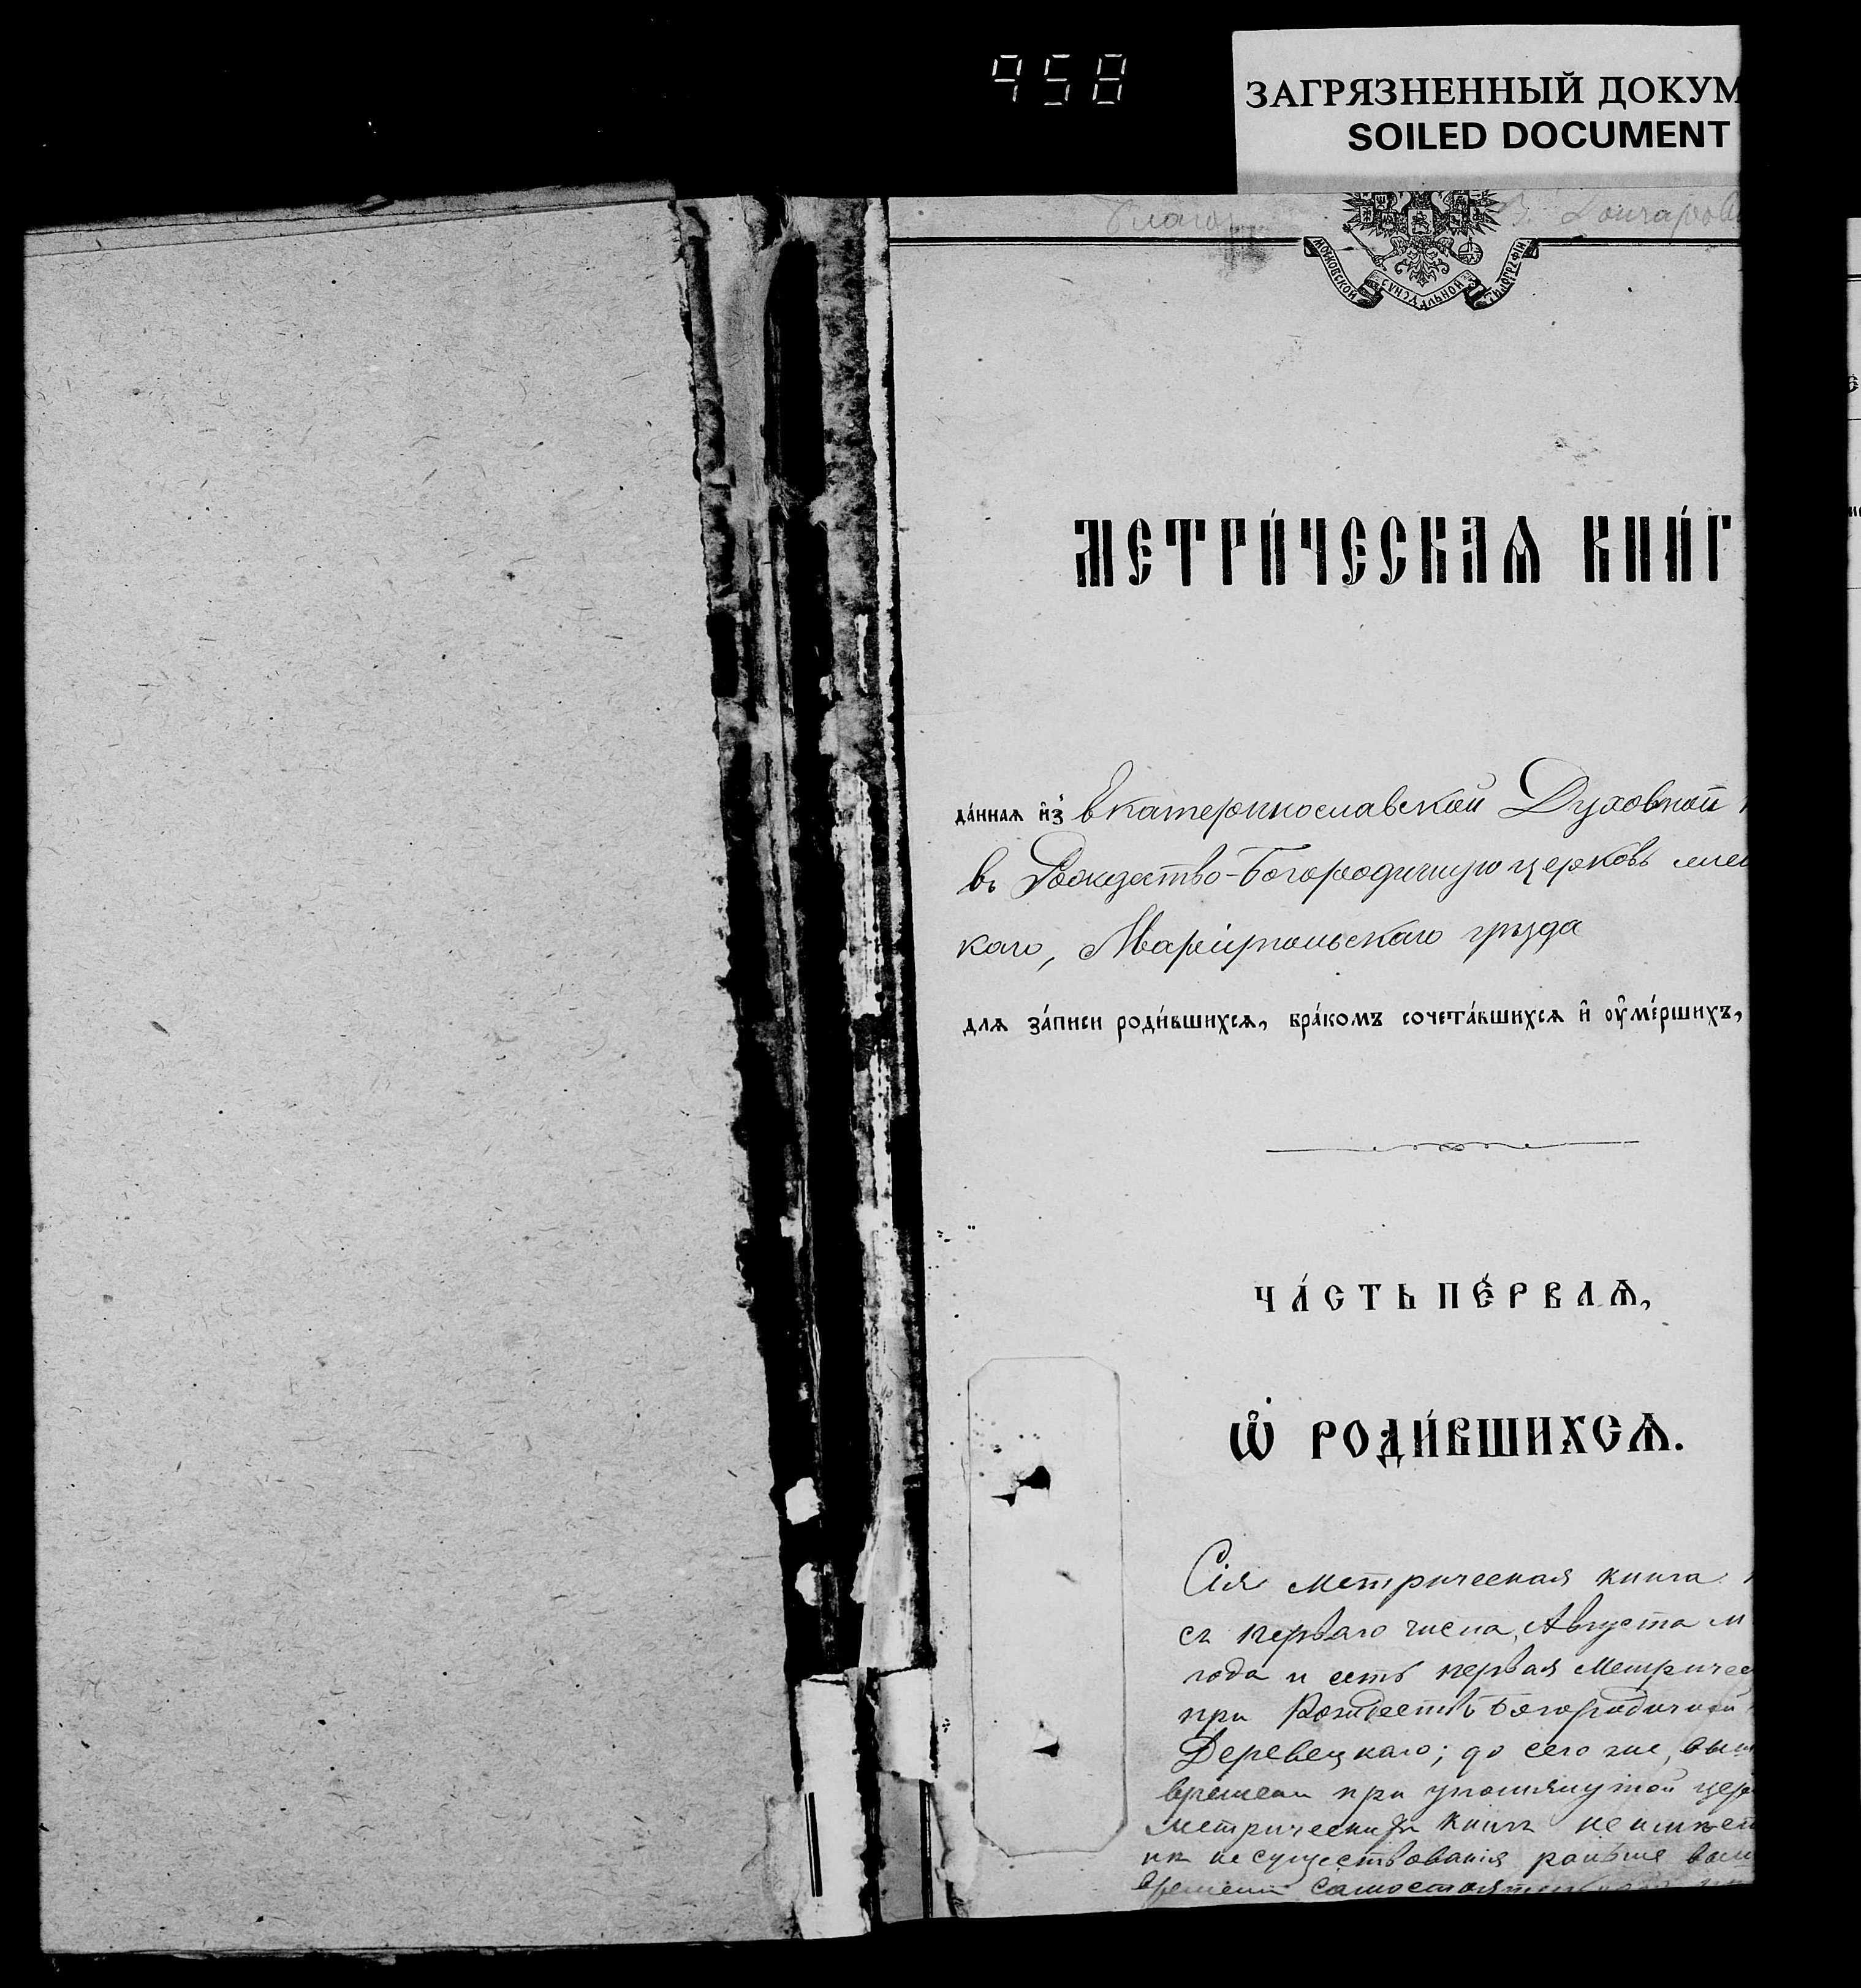 958
ЗАГРЯЗНЕННЫЙ ДОКУМ
SOILED DOCUMENT
Благоч. В. Гончаров
МОСКОВСКОЙ СѴНОДАЛЬНОЙ ТИПОГРАФІИ
МЕТРИ́ЧЕСКАѦ КНИ́Г
да́ннаѧ и҆з̾ Екатеринославской Духовной
въ Рождество-Богородичную церковь
каго, Маріупольскаго уѣзда
длѧ за́писи роди́вшихсѧ, бра́комъ сочета́вшихсѧ и҆ ᲂу҆ме́ршихъ,
ЧА́СТЬ ПЕ́РВАѦ,
Ѡ҆ РОДИ́ВШИХСѦ.
Сія метрическая книга
съ перваго числа Августа м
года и есть первая Метричес
при Рождество Богородичной
Деревецкаго; до сего же, вы
времени при упомянутой цер
метрическихъ книгъ не имѣет
не существованія раньше вы
времени самостоятель